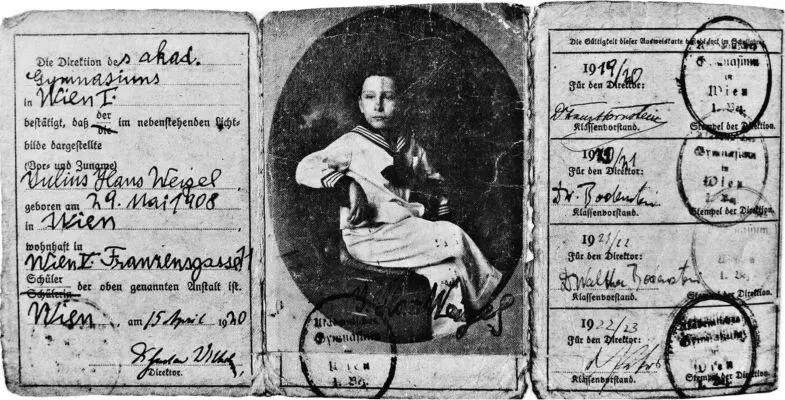 Die Direktion des akad.
Gymnasiums
in Wien I.
bestätigt, daß der
die im nebenstehenden Licht-
bilde dargestellte
(Vor- und Zuname)
Julius Hans Weigel
geboren am 29. Mai 1908
in Wien
wohnhaft in
Wien V. Franzensgasse
Schüler
Schülerin der oben genannten Anstalt ist.
Wien, am 15 April 1920
Direktor.
Akademisches
Gymnasium
in
Wien
I. Bez.
Die Gültigkeit dieser Ausweiskarte
1919/20
Für den Direktor:
Klassenvorstand.
Gymnasium
in
Wien
I. Bez.
Stempel der Direktion.
21
Für den Direktor:
Dr. Bodenstein
Klassenvorstand.
Gymnasium
in
Wien
Stempel der Direktion.
1921/22
Für den Direktor:
Dr Walther Bodenstein
Klassenvorstand.
Wien
I. Bez.
Stempel der Direktion.
1922/23
Für den Direktor:
Klassenvorstand.
Akademisches
Gymnasium
in
Wien
Stempel der Direktion.